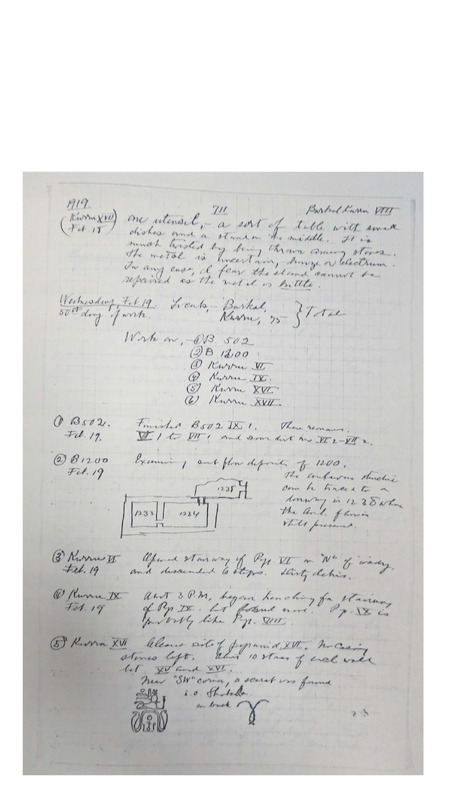 1919 711 Barkal Kurru VIII
(Kurru XVII) one utensil, a sort of table with small
Feb. 18 dishes and a stand in the middle. It is
much twisted by being thrown among stones.
The metal is uncertain, bronze or electrum.
In any case, I fear the stand cannot be
repaired as the metal is brittle.
Wednesday, Feb 19. Locals, Barkal,
50th day of work. Kurru, 75 } Total
Work on, ① B 502
② B 1200
③ Kurru VI
④ Kurru IX
⑤ Kurru XVI
⑥ Kurru XVII
① B 502. Finished B 502 IX 1. There remains
Feb. 19. VI 1 to VII 1, and some dirt in VI 2 - VII 2.
② B 1200 Examining ant floor deposits of 1200.
Feb. 19 The
can be traced to a
doorway in 1228 where
the floor is
still present.
1225
1233 1224
③ Kurru VI Opened stairway of Pyr. VI on "N" of
Feb. 19 and descended 6 steps. Dirty debris.
④ Kurru IX About 3 P.M. began searching for stairway
Feb. 19 of Pyr. IX, but found none. Pyr. IX is
probably like Pyr. VIII.
⑤ Kurru XVI Cleared side of pyramid XVI. No casing
stones left. About 10 stones of wall
bet. XV and XVI.
Near "SW" corner, a scarab was found
on back